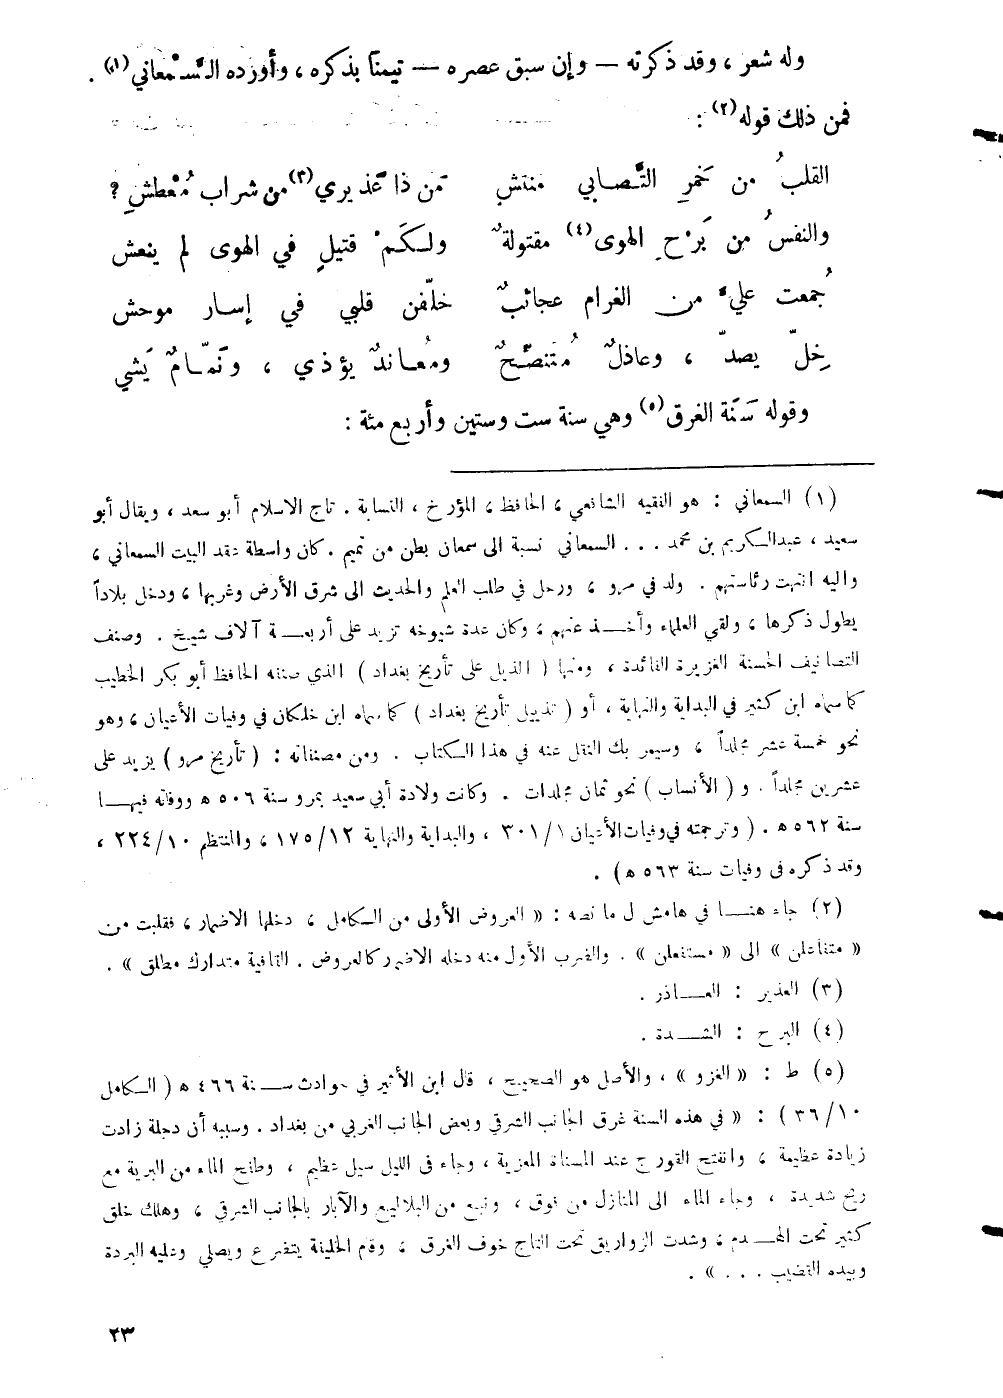 وله شعر ، وقد ذكرته — وإن سبق عصره — تيمناً بذكره ، وأورده السَّمْعاني (١) .
فمن ذلك قوله (٢) :
القلبُ من خَمرِ التَّصابي منتشِ مَن ذا عَذيري (٣) من شراب مُعْطشِ ؟
والنفسُ من بَرْحِ الهوى (٤) مقتولةٌ ولكَمْ قتيلٍ في الهوى لم ينعش
جُمعت عليَّ من الغرام عجائبٌ خلّفن قلبي في إسار موحش
خِلٌّ يصدّ ، وعاذلٌ مُتَنصِّحٌ ومُعاندٌ يؤذي ، ونَمّامٌ يَشي
وقوله سَنَة الغرق (٥) وهي سنة ست وستين وأربع مئة :
(١) السمعاني : هو الفقيه الشافعي ، الحافظ ، المؤرخ ، النسابة . تاج الاسلام أبو سعد ، ويقال أبو
سعيد ، عبدالكريم بن محمد . . . السمعاني نسبة الى سمعان بطن من تميم . كان واسطة عقد البيت السمعاني ،
واليه انتهت رئاستهم . ولد في مرو ، ورحل في طلب العلم والحديث الى شرق الأرض وغربها ، ودخل بلاداً
يطول ذكرها ، ولقي العلماء وأخذ عنهم ، وكان عدة شيوخه تزيد على أربعة آلاف شيخ . وصنف
التصانيف الحسنة الغزيرة الفائدة ، ومنها ( الذيل على تأريخ بغداد ) الذي صنفه الحافظ أبو بكر الخطيب
كما سماه ابن كثير في البداية والنهاية ، أو ( تذييل تأريخ بغداد ) كما سماه ابن خلكان في وفيات الأعيان ، وهو
نحو خمسة عشر مجلداً ، وسيمر بك النقل عنه في هذا الكتاب . ومن مصنفاته : ( تأريخ مرو ) يزيد على
عشرين مجلداً . و ( الأنساب ) نحو ثمان مجلدات . وكانت ولادة أبي سعيد بمرو سنة ٥٠٦ ه ووفاته فيها
سنة ٥٦٢ ه . ( وترجمته في وفيات الأعيان ٣٠١/١ ، والبداية والنهاية ١٧٥/١٢ ، والمنتظم ٢٢٤/١٠ ،
وقد ذكره في وفيات سنة ٥٦٣ ه ) .
(٢) جاء هنا في هامش ل ما نصه : « العروض الأولى من الكامل ، دخلها الاضمار ، فقلبت من
« متفاعلن » الى « مستفعلن » . والضرب الأول منه دخله الاضمار كالعروض . القافية متدارك مطلق » .
(٣) العذير : العاذر .
(٤) البرح : الشدة .
(٥) ط : « الغزو » ، والأصل هو الصحيح ، قال ابن الأثير في حوادث سنة ٤٦٦ ه ( الكامل
٣٦/١٠ ) : « في هذه السنة غرق الجانب الشرقي وبعض الجانب الغربي من بغداد . وسببه أن دجلة زادت
زيادة عظيمة ، وانفتح القورج عند المسناة المعزية ، وجاء في الليل سيل عظيم ، وطفح الماء من البرية مع
ريح شديدة ، وجاء الماء الى المنازل من فوق ، ونبع من البلاليع والآبار بالجانب الشرقي ، وهلك خلق
كثير تحت الهدم ، وشدت الزواريق تحت التاج خوف الغرق ، وقام الخليفة يتضرع ويصلي وعليه البردة
وبيده القضيب . . . » .
٢٣